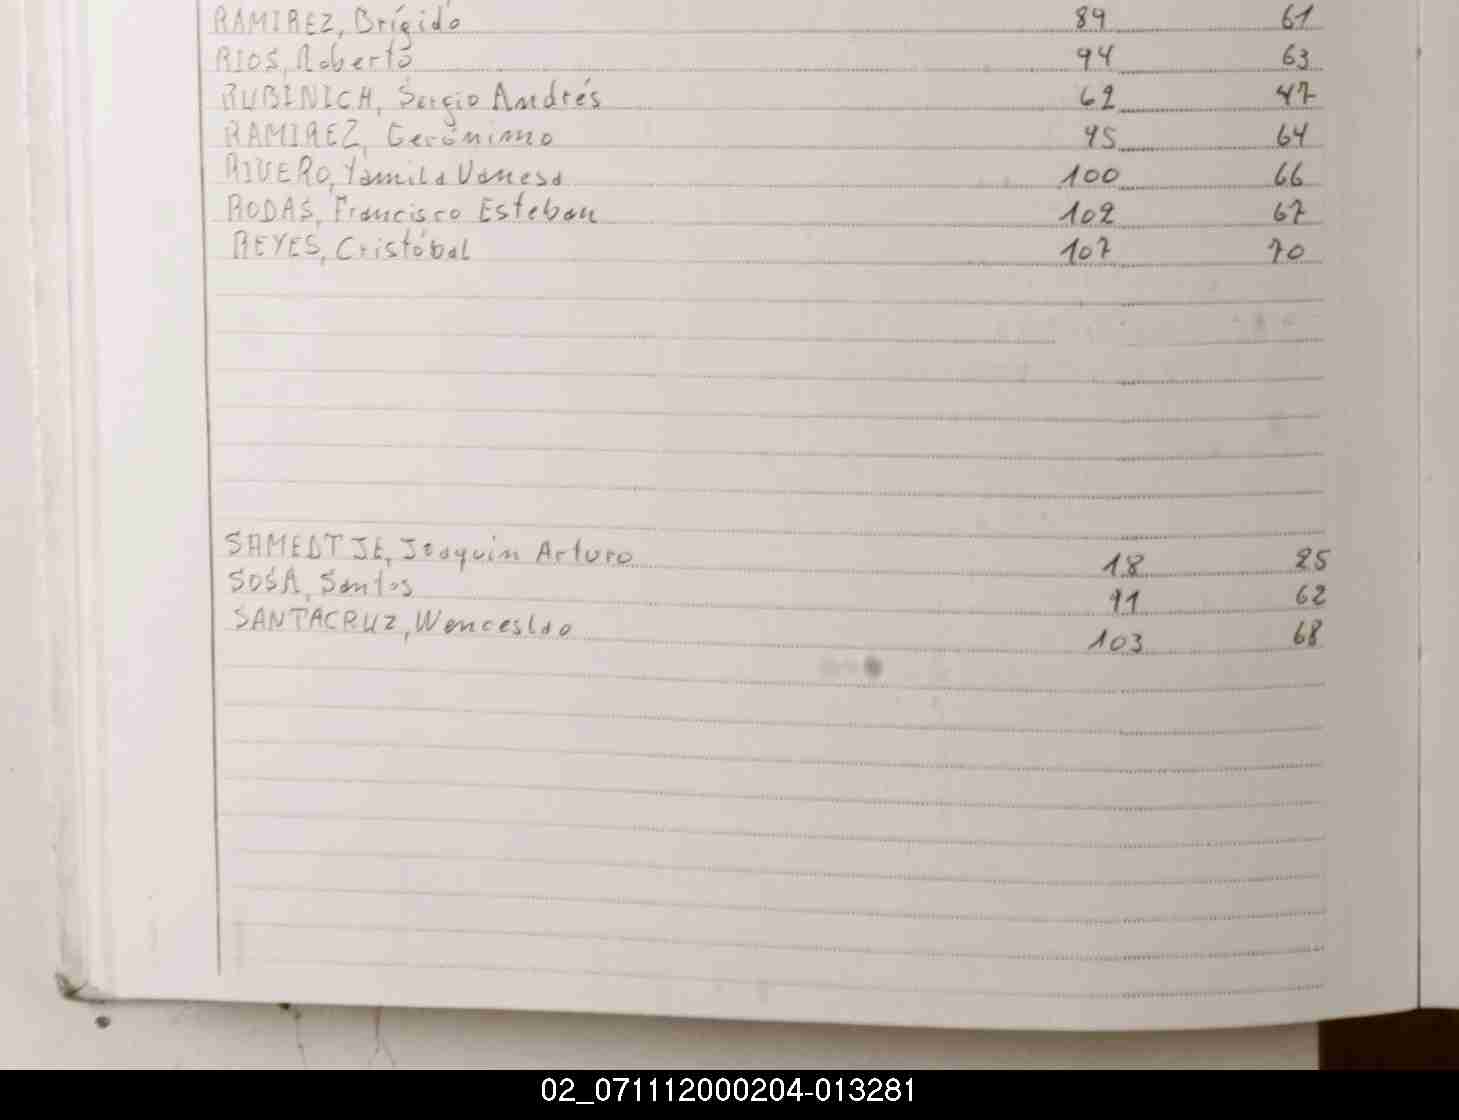 RAMIREZ, Brígido 89 61
RIOS, Roberto 94 63
RUBINICH, Sergio Andrés 62 47
RAMIREZ, Gerónimo 95 64
RIVERO, Yamila Vanesa 100 66
RODAS, Francisco Esteban 102 67
REYES, Cristóbal 107 70
Joaquin Arturo 18 25
SOSA, Santos 91 62
SANTACRUZ, Wenceslao 103 68
02_071112000204-013281